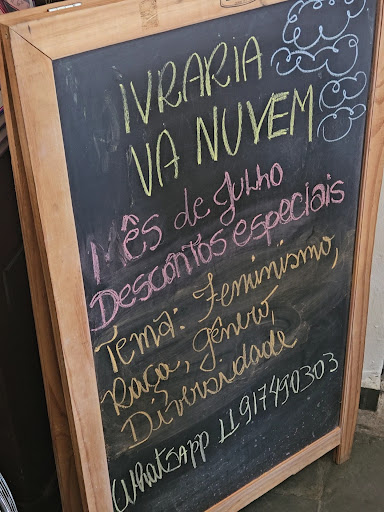 IVRARIA
NA NUVEM
Mês de Julho
Descontos especiais
Tema: Feminismo,
Raça, Gênero,
Diversidade
WhatsApp 11 917490303